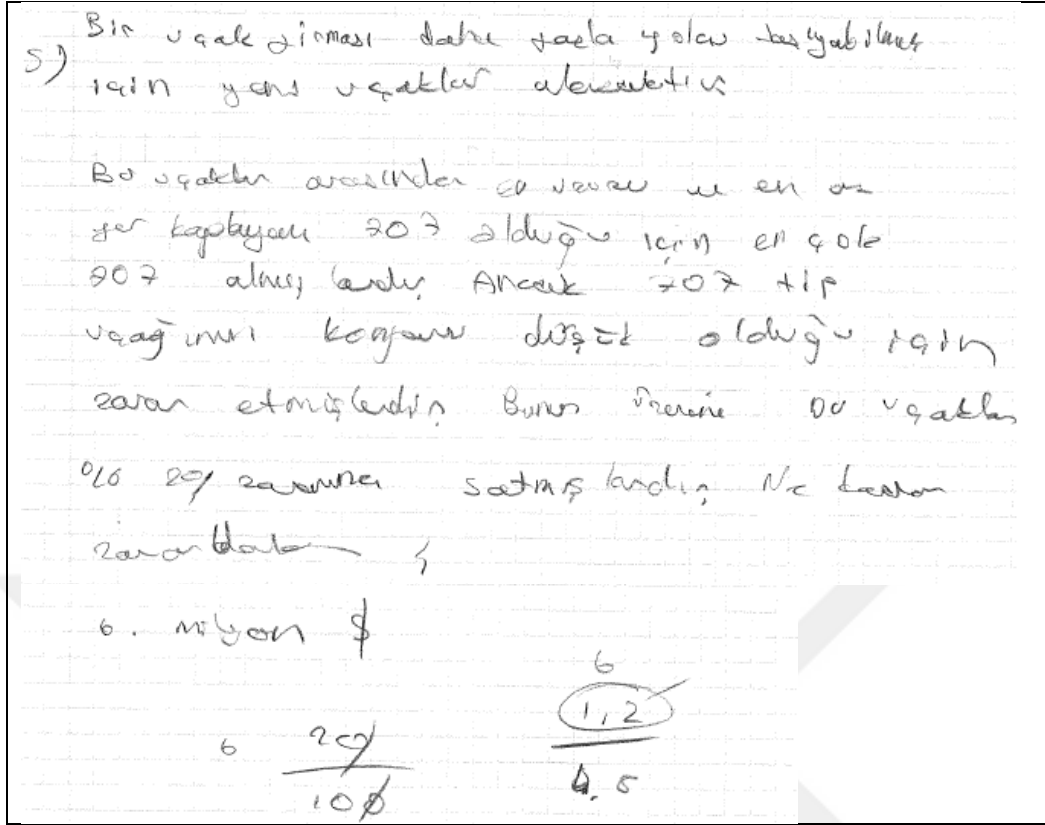 Bir uçak firması daha fazla yolcu taşıyabilmek
5) için yeni uçaklar alacaktır
Bu uçaklar arasından en ucuzu ve en az
yer kaplayanı 707 olduğu için en çok
707 almışlardır Ancak 707 tip
uçağının düşük olduğu için
zarar etmişlerdir Bunun üzerine bu uçakları
%20 zararına satmışlardır Ne kadar
zarardalar ?
6. milyon $
6 20/100
6
1,2
4.8